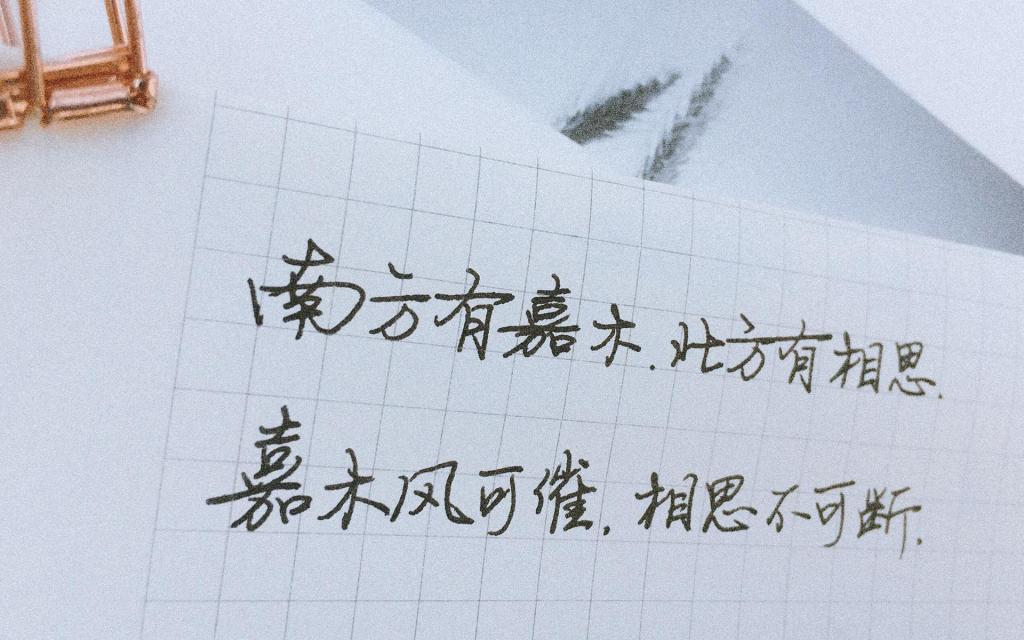 南方有嘉木.北方有相思.
嘉木风可催.相思不可断.